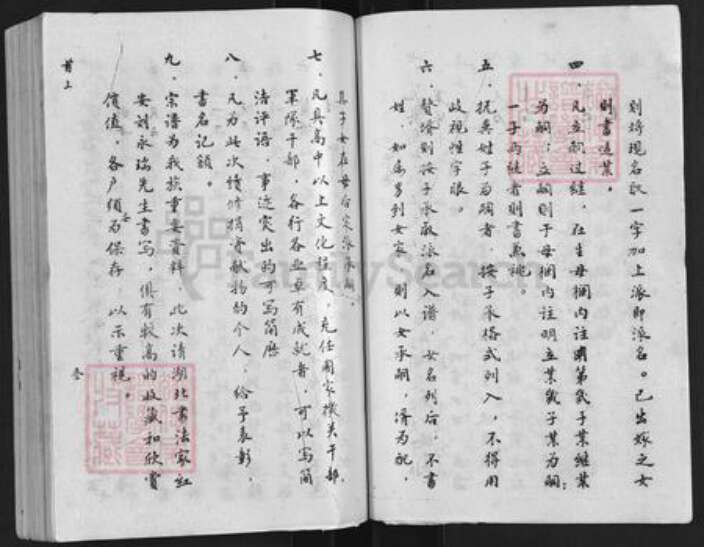 则将现名取一字加上派即派名。已出嫁之女
则书适某。
四、凡立嗣过继，在生母栏内注明第几子某继某
为嗣；立嗣则于母栏内注明立某几子某为嗣；
一子两继者则书兼祧。
五、抚异姓子为嗣者，按子承格式列入，不得用
歧视性字眼。
六、赘婿则按子承取派名入谱，女名列后，不书
姓，如属男到女家，则以女承嗣，婿为配，
其子女在母后实派承嗣。
七、凡具高中以上文化程度，充任国家机关干部，
军队干部，各行各业卓有成就者，可以写简
洁评语，事迹突出的可写简历
八、凡为此次续修捐资献物的个人，给予表彰，
书名记额。
九、宗谱为我族重要资料，此次请湖北书法家红
安刘永瑞先生书写，俱有较高的收藏和欣赏
价值，各户须为保存，以示重视。
首上
FamilySearch